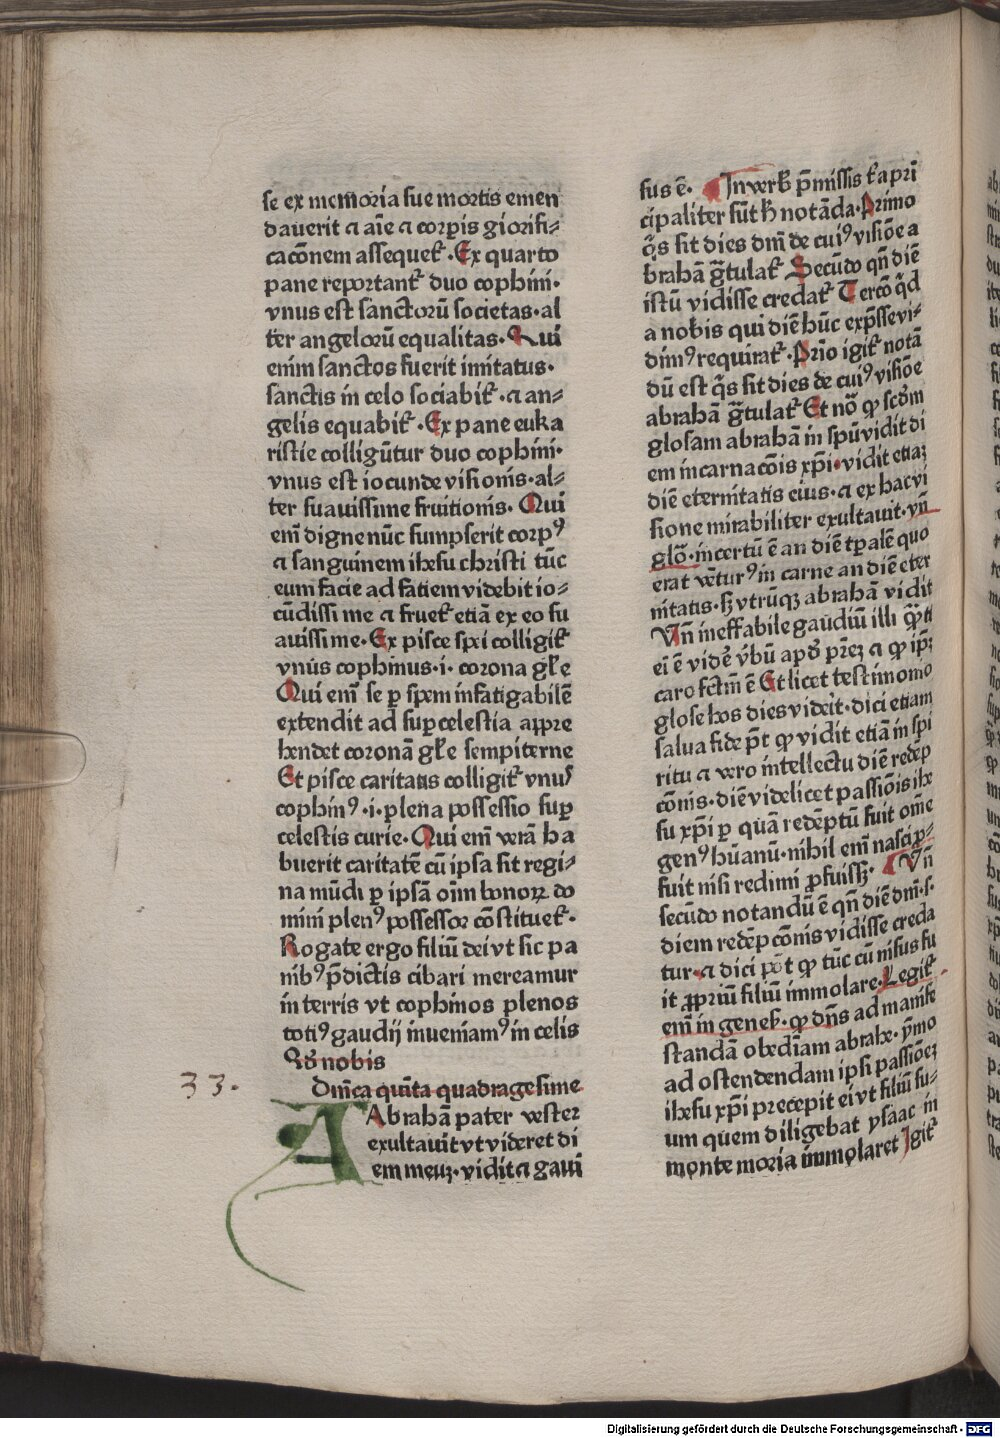 se ex memoria sue mortis emen
dauerit ⁊ aīe ⁊ corꝑis glorifi⸗
cacōnem assequetꝛ̄. Ex quarto
pane reportantꝛ̄ duo cophini.
vnus est sanctorū societas. al
ter angelorū equalitas. Qui
enim sanctos fuerit imitatus.
sanctis in celo sociabitꝛ̄. ⁊ an⸗
gelis equabitꝛ̄. Ex pane euka
ristie colligūtur duo cophini.
vnus est iocunde visionis. al⸗
ter suauissime fruitionis. Qui
em̄ digne nūc sumpserit corpꝰ
⁊ sanguinem ihesu christi tūc
eum facie ad fatiem videbit io⸗
cūdissime ⁊ fruetꝛ̄ etiā ex eo su
auissime. Ex pisce spei colligitꝛ̄
vnus cophinus .i. corona gl̄e
Qui em̄ se ꝑ spem infatigabilē
extendit ad suꝑcelestia appre
hendet coronā gl̄e sempiterne
Et pisce caritatis colligitꝛ̄ vnus
cophinꝰ .i. plena possessio suꝑ
celestis curie. Qui em̄ verā ha
buerit caritatē cū ipsa sit regi⸗
na mūdi ꝑ ipsā oīm bonoꝝ do
mini plenꝰ possessor cōstituetꝛ̄.
Rogate ergo filiū dei vt sic pa
nibꝰ p̄dictis cibari mereamur
in terris vt cophinos plenos
totiꝰ gaudij inueniamꝰ in celis
Qd̄ nobis
33.
Dn̄ica quīta quadragesime
Abrahā pater vester
exultauit vt videret di
em meuꝫ. vidit ⁊ gaui
sus ē. In verb̄ p̄missis tꝛ̄a pri
cipaliter sūt h̄ notāda. Primo
q̄s sit dies dn̄i de cuiꝰ visiōe a
brahā gͣtulatꝛ̄ Secūdo qn̄ diē
istū vidisse credatꝛ̄ Tercō q̄d
a nobis qui diē hūc exp̄sse vi⸗
dimꝰ requiratꝛ̄. Prīo igitꝛ̄ notā
dū est q̄s sit dies de cuiꝰ visiōe
abrahā gͣtulatꝛ̄ Et nō ꝙ scdm̄
glosam abrahā in spū vidit di
em incarnacōis xp̄i. vidit etiaꝫ
diē eternitatis eius. ⁊ ex hac vi
sione mirabiliter exultauit. vn̄
glō. incertū ē an diē tꝑalē quo
erat vēturꝰ in carne an diē eter
nitatis. sꝫ vtrūqꝫ abrahā vidit
Vn̄ ineffabile gaudiū illi
ei ē vidē v̄bū apd̄ pr̄eꝫ ⁊ ꝙ ip̄ꝫ
caro fctm̄ ē Et licet testimonio
glose hos dies videīt. dici etiam
salua fide p̄t ꝙ vidit etiā in spi
ritu ⁊ vero intellectu diē redēp
cōnis. diē videlicet passiōis ihe
su xp̄i ꝑ quā redēptū fuit om̄e
genꝰ hūanū. nihil em̄ nasci ꝓ⸗
fuit nisi redimi ꝓfuissꝫ. Vn̄
secūdo notandū ē qn̄ diē dn̄i .s.
diem redēpcōnis vidisse creda
tur. ⁊ dici pōt ꝙ tūc cū nisus fu
it ꝓpriū filiū immolare. Legitꝛ̄
em̄ in genes̄. ꝙ dn̄s ad manife
standā obediam abrahe. p̄mo
ad ostendendam ipsi passiōeꝫ
ihesu xp̄i precepit ei vt filiū su⸗
um quem diligebat ysaac in
monte moria immolaret Igitꝛ̄
Digitalisierung gefördert durch die Deutsche Forschungsgemeinschaft - DFG